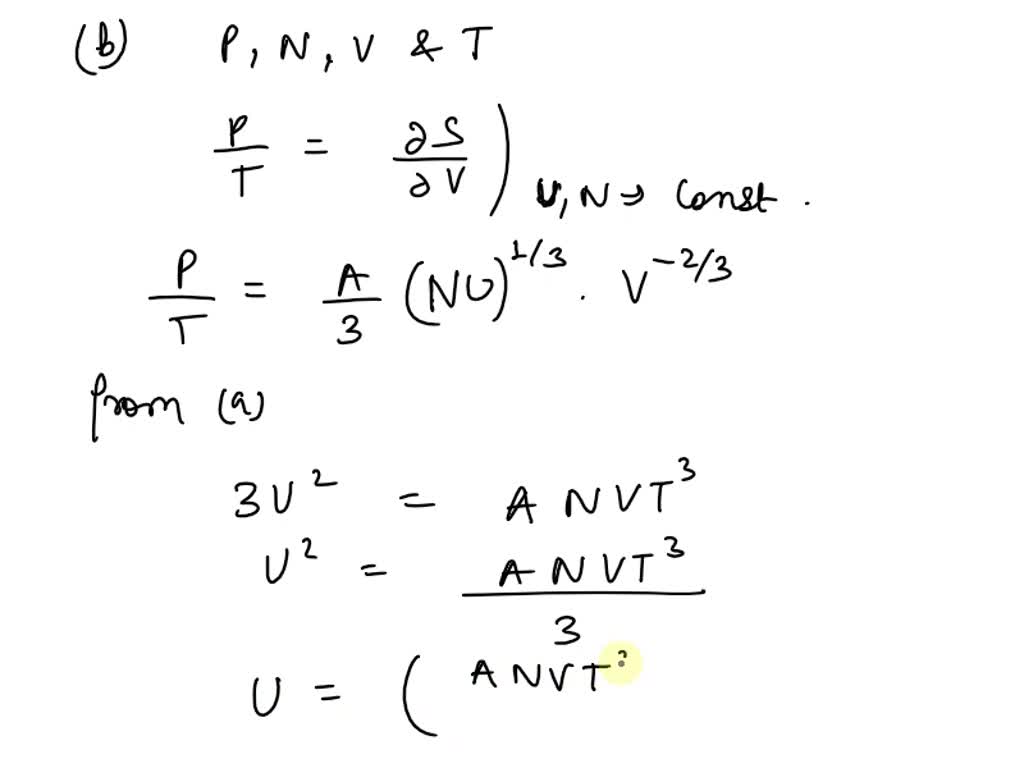 (b) P, N, V & T
P/T = ∂S/∂V )U, N → Const.
P/T = A/3 (NU)^1/3 . V^-2/3
from (a)
3U² = A N V T³
U² = A N V T³ / 3
U = ( A N V T³